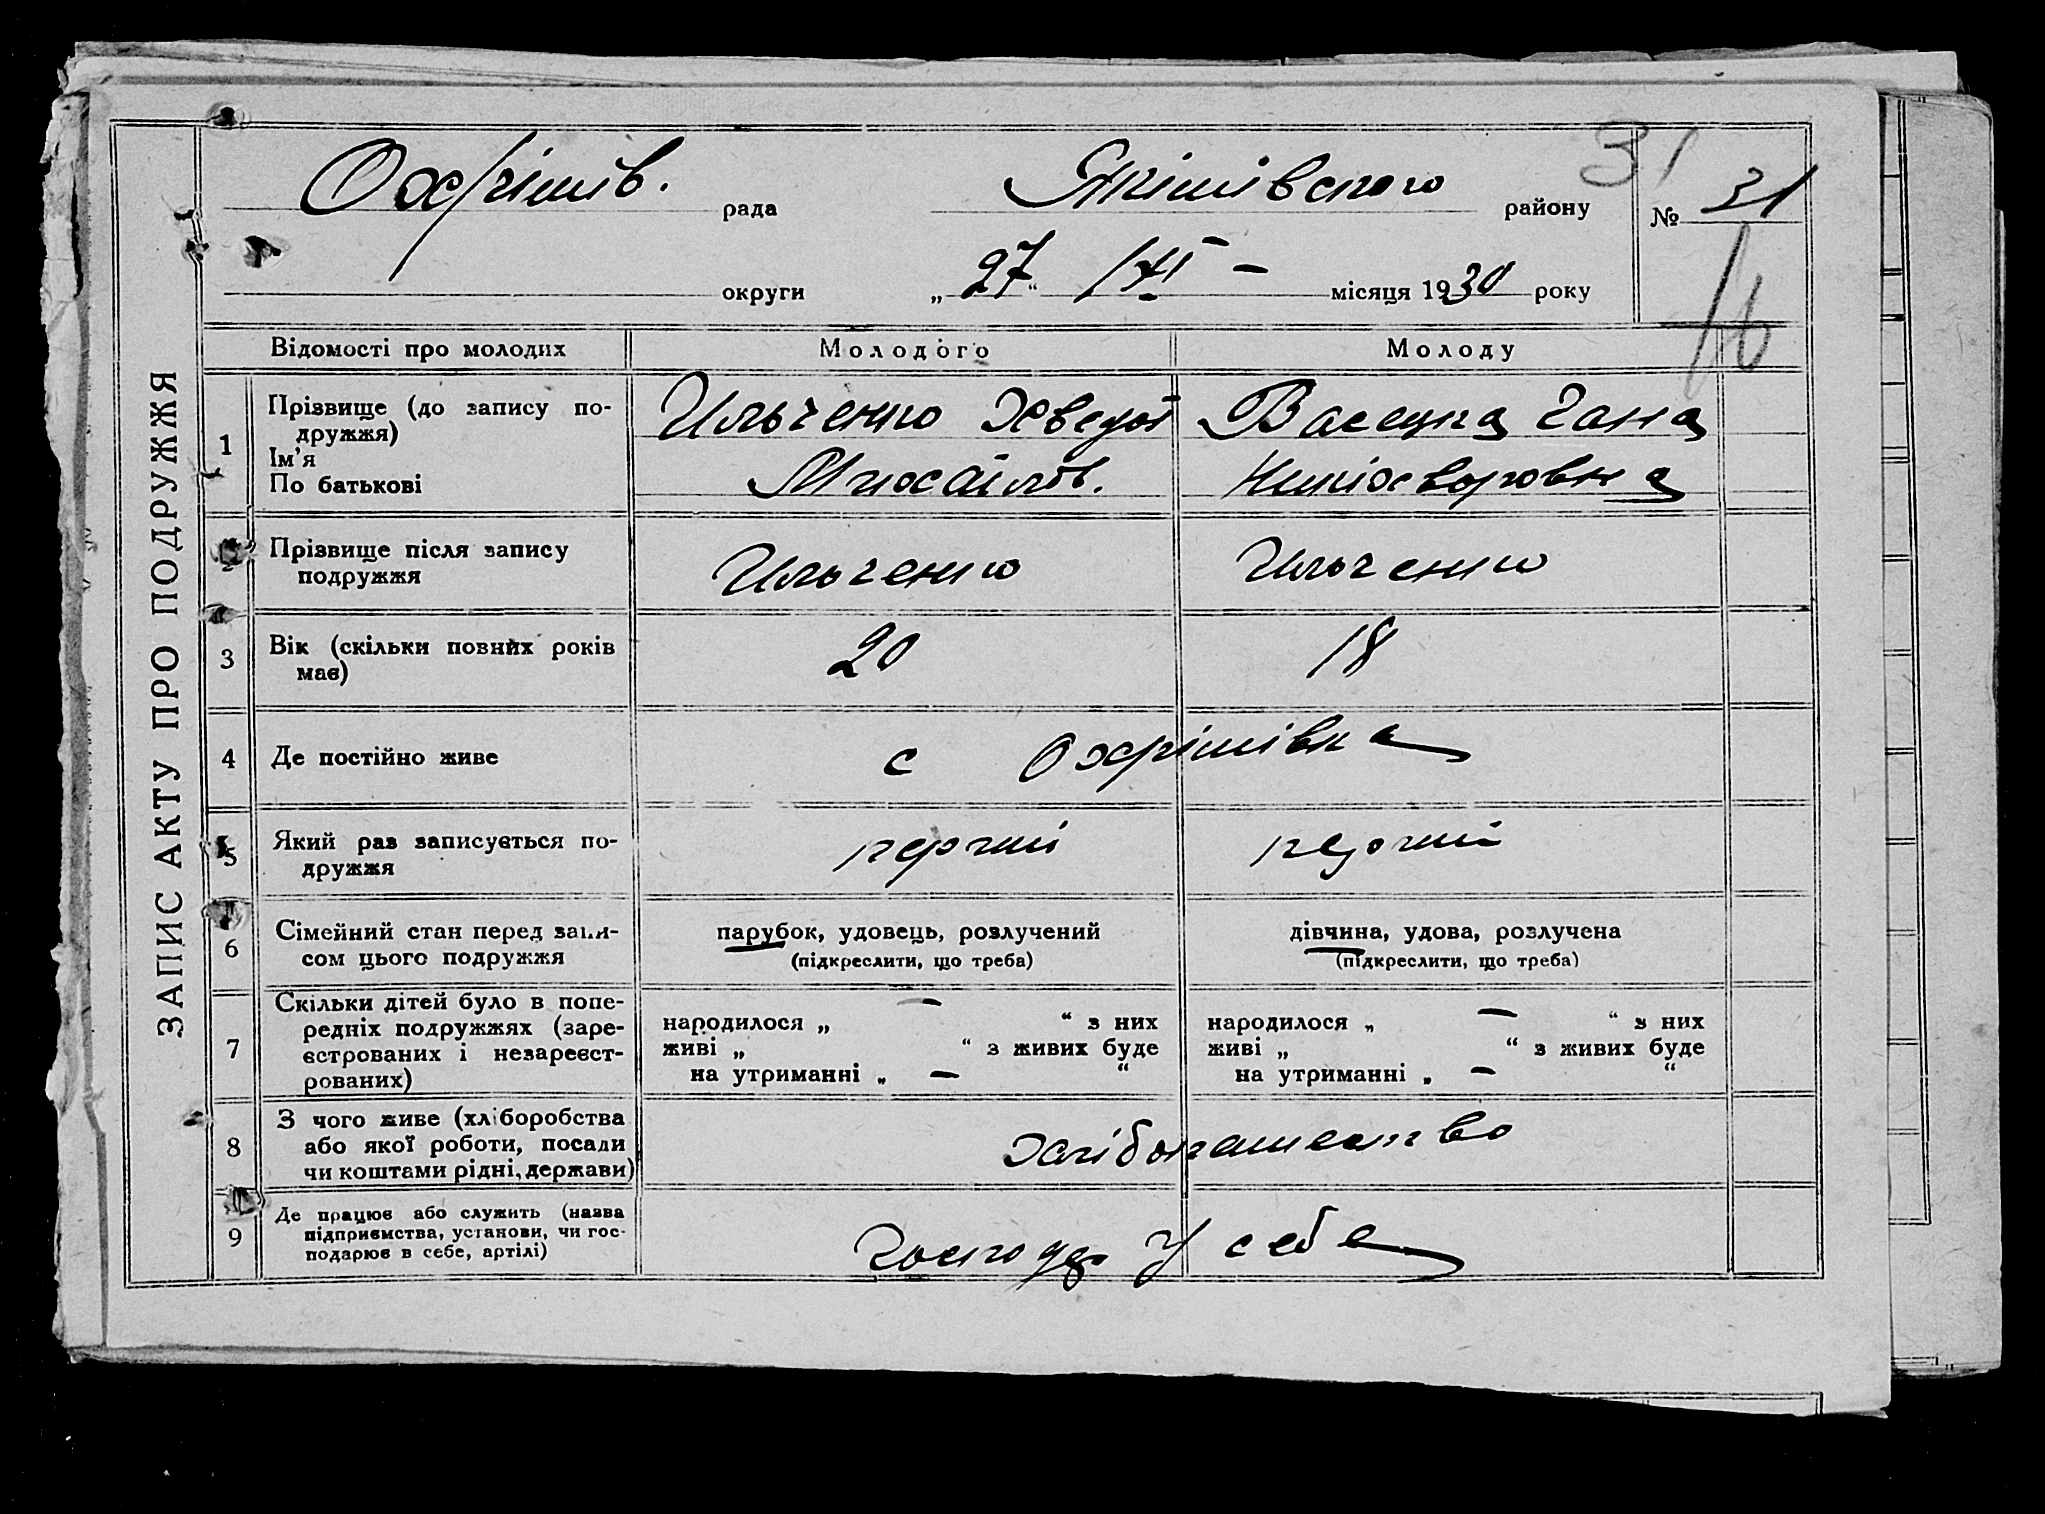 ЗАПИС АКТУ ПРО ПОДРУЖЖЯ
31
Охрімів. рада Якімівского району № 31
округи „27“ місяця 1930 року
Відомості про молодих Молодого Молоду
1 Прізвище (до запису по-
дружжя)
Ім'я
По батькові
Ильченко Хведір
Михайлов.
Васецка Гана
Никіхворовна
2 Прізвище після запису
подружжя
Ильченко Ильченко
3 Вік (скільки повних років
має)
20 18
4 Де постійно живе
с Охрімівка
5 Який раз записується по-
дружжя
перший перший
6 Сімейний стан перед запи-
сом цього подружжя
парубок, удовець, розлучений
(підкреслити, що треба)
дівчина, удова, розлучена
(підкреслити, що треба)
7 Скільки дітей було в попе-
редніх подружжях (заре-
єстрованих і незареєст-
рованих)
народилося „ — “ з них
живі „ “ з живих буде
на утриманні „ — “
народилося „ — “ з них
живі „ “ з живих буде
на утриманні „ — “
8 З чого живе (хліборобства
або якої роботи, посади
чи коштами рідні, держави)
хлібопашество
9 Де працює або служить (назва
підприємства, установи, чи гос-
подарює в себе, артілі)
Господар У себе